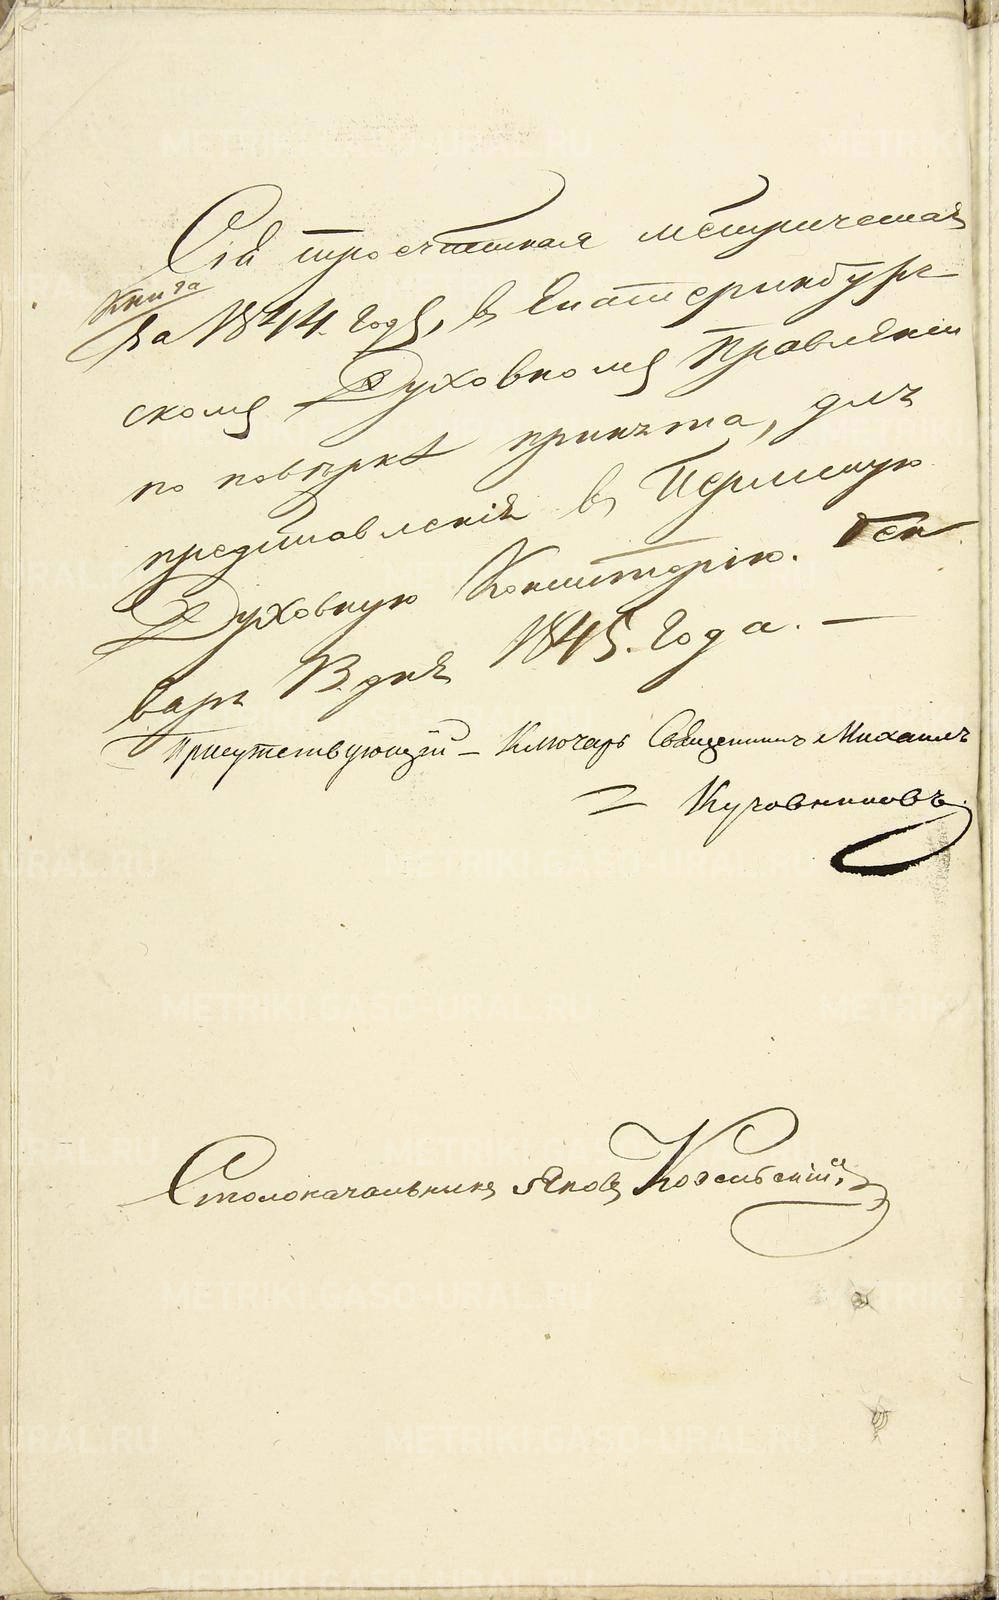 Сія троечастная метрическая
Книга
за 1844. годъ, въ Екатеринбург-
скомъ Духовномъ Правленіи
по повѣркѣ принята, для
представленія въ Пермскую
Духовную Консисторію. Ген
варя 13. дня 1845. года. —
Присутствующій — Ключарь Священникъ Михаилъ
Кучовниковъ.
Столоначальникъ Яковъ Козельскій